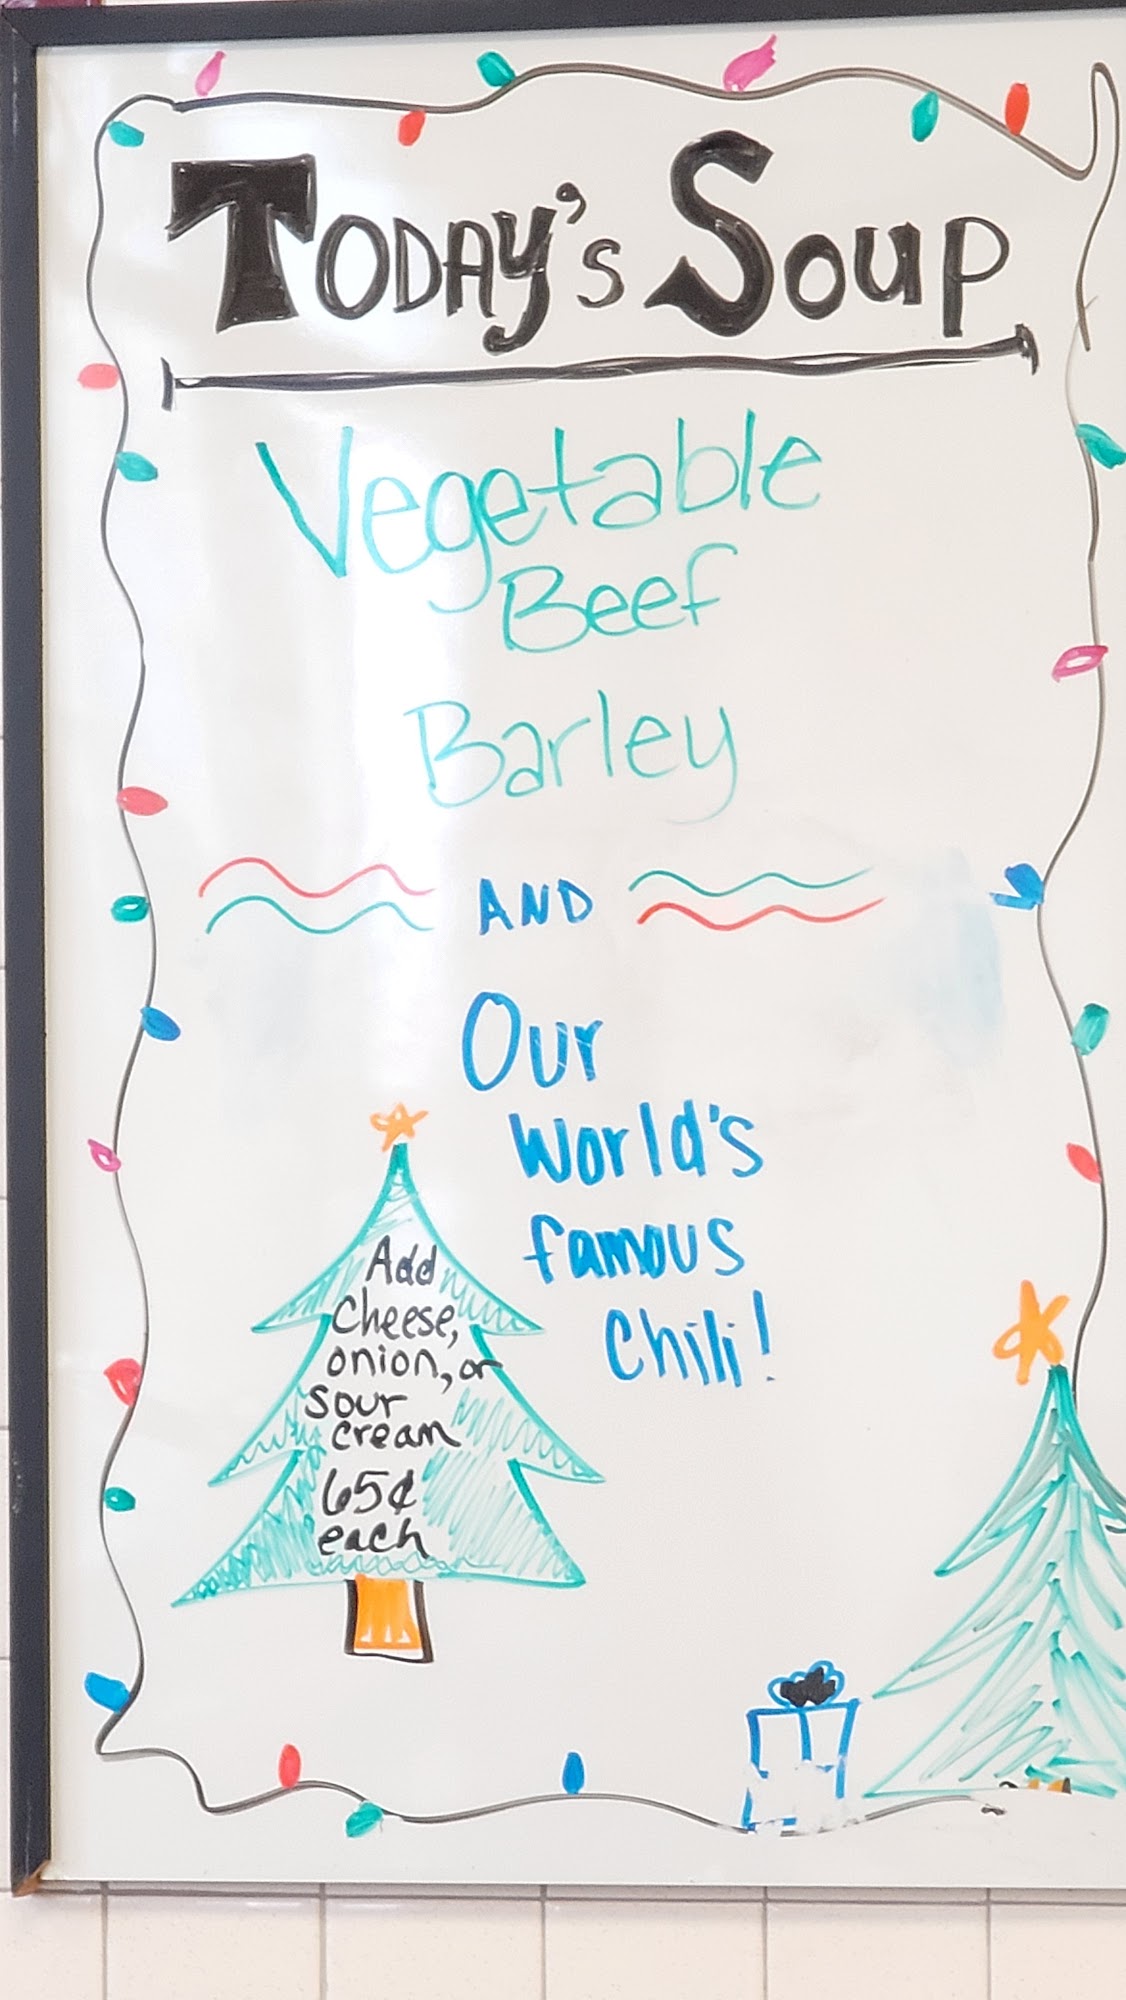 Today's Soup
Vegetable
Beef
Barley
AND
Our
World's
famous
Chili!
Add
Cheese,
onion, or
sour
cream
65¢
each